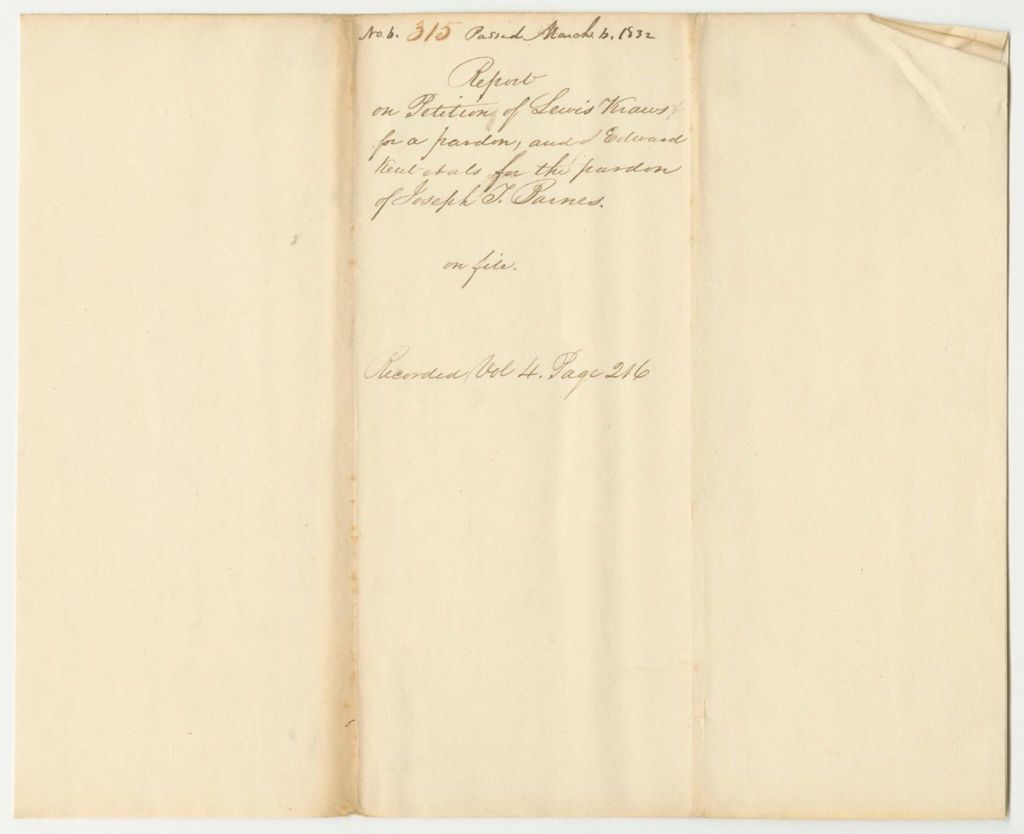 No 6. 315 Passed March 6, 1832
Report
on Petition of Lewis
for a pardon, and Edward
Kent et als for the pardon
of Joseph T. Barnes.
on file.
Recorded Vol 4. Page 216